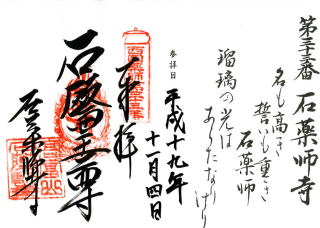 第三十三番 石薬師寺
名も高き
誓いも重き
石薬師
瑠璃の光は
あらたなりけり
参拝日
平成十九年
十一月四日
奉拝
石醫王尊
石薬師寺